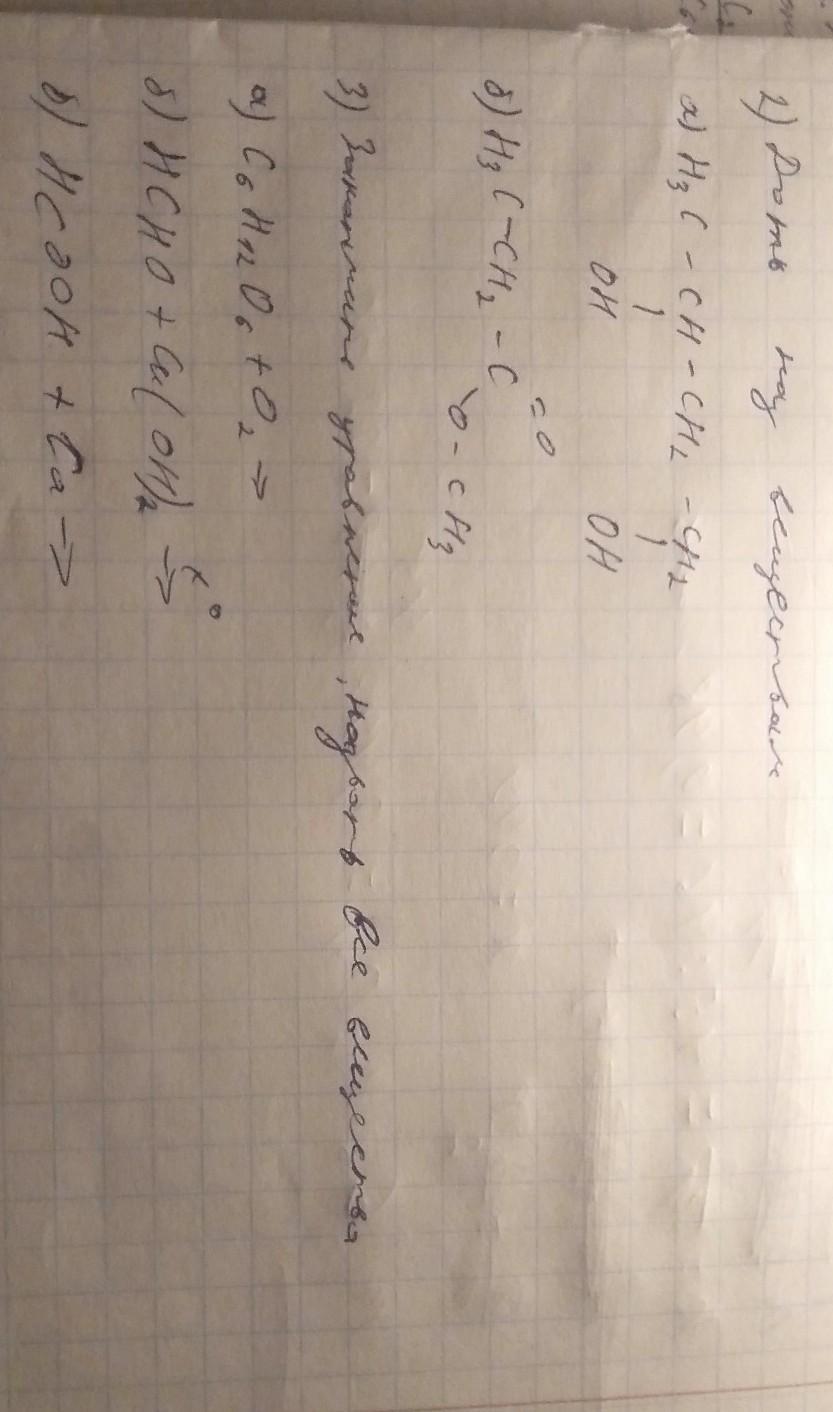 2) Дать наз веществам
а) H₃C - CH - CH₂ - CH₂
OH OH
б) H₃C - CH₂ - C
= O
\ O - CH₃
3) Закончите уравнение, назвать все вещества
а) C₆H₁₂O₆ + O₂ →
б) HCHO + Cu(OH)₂ t° →
в) HCOOH + Ca →